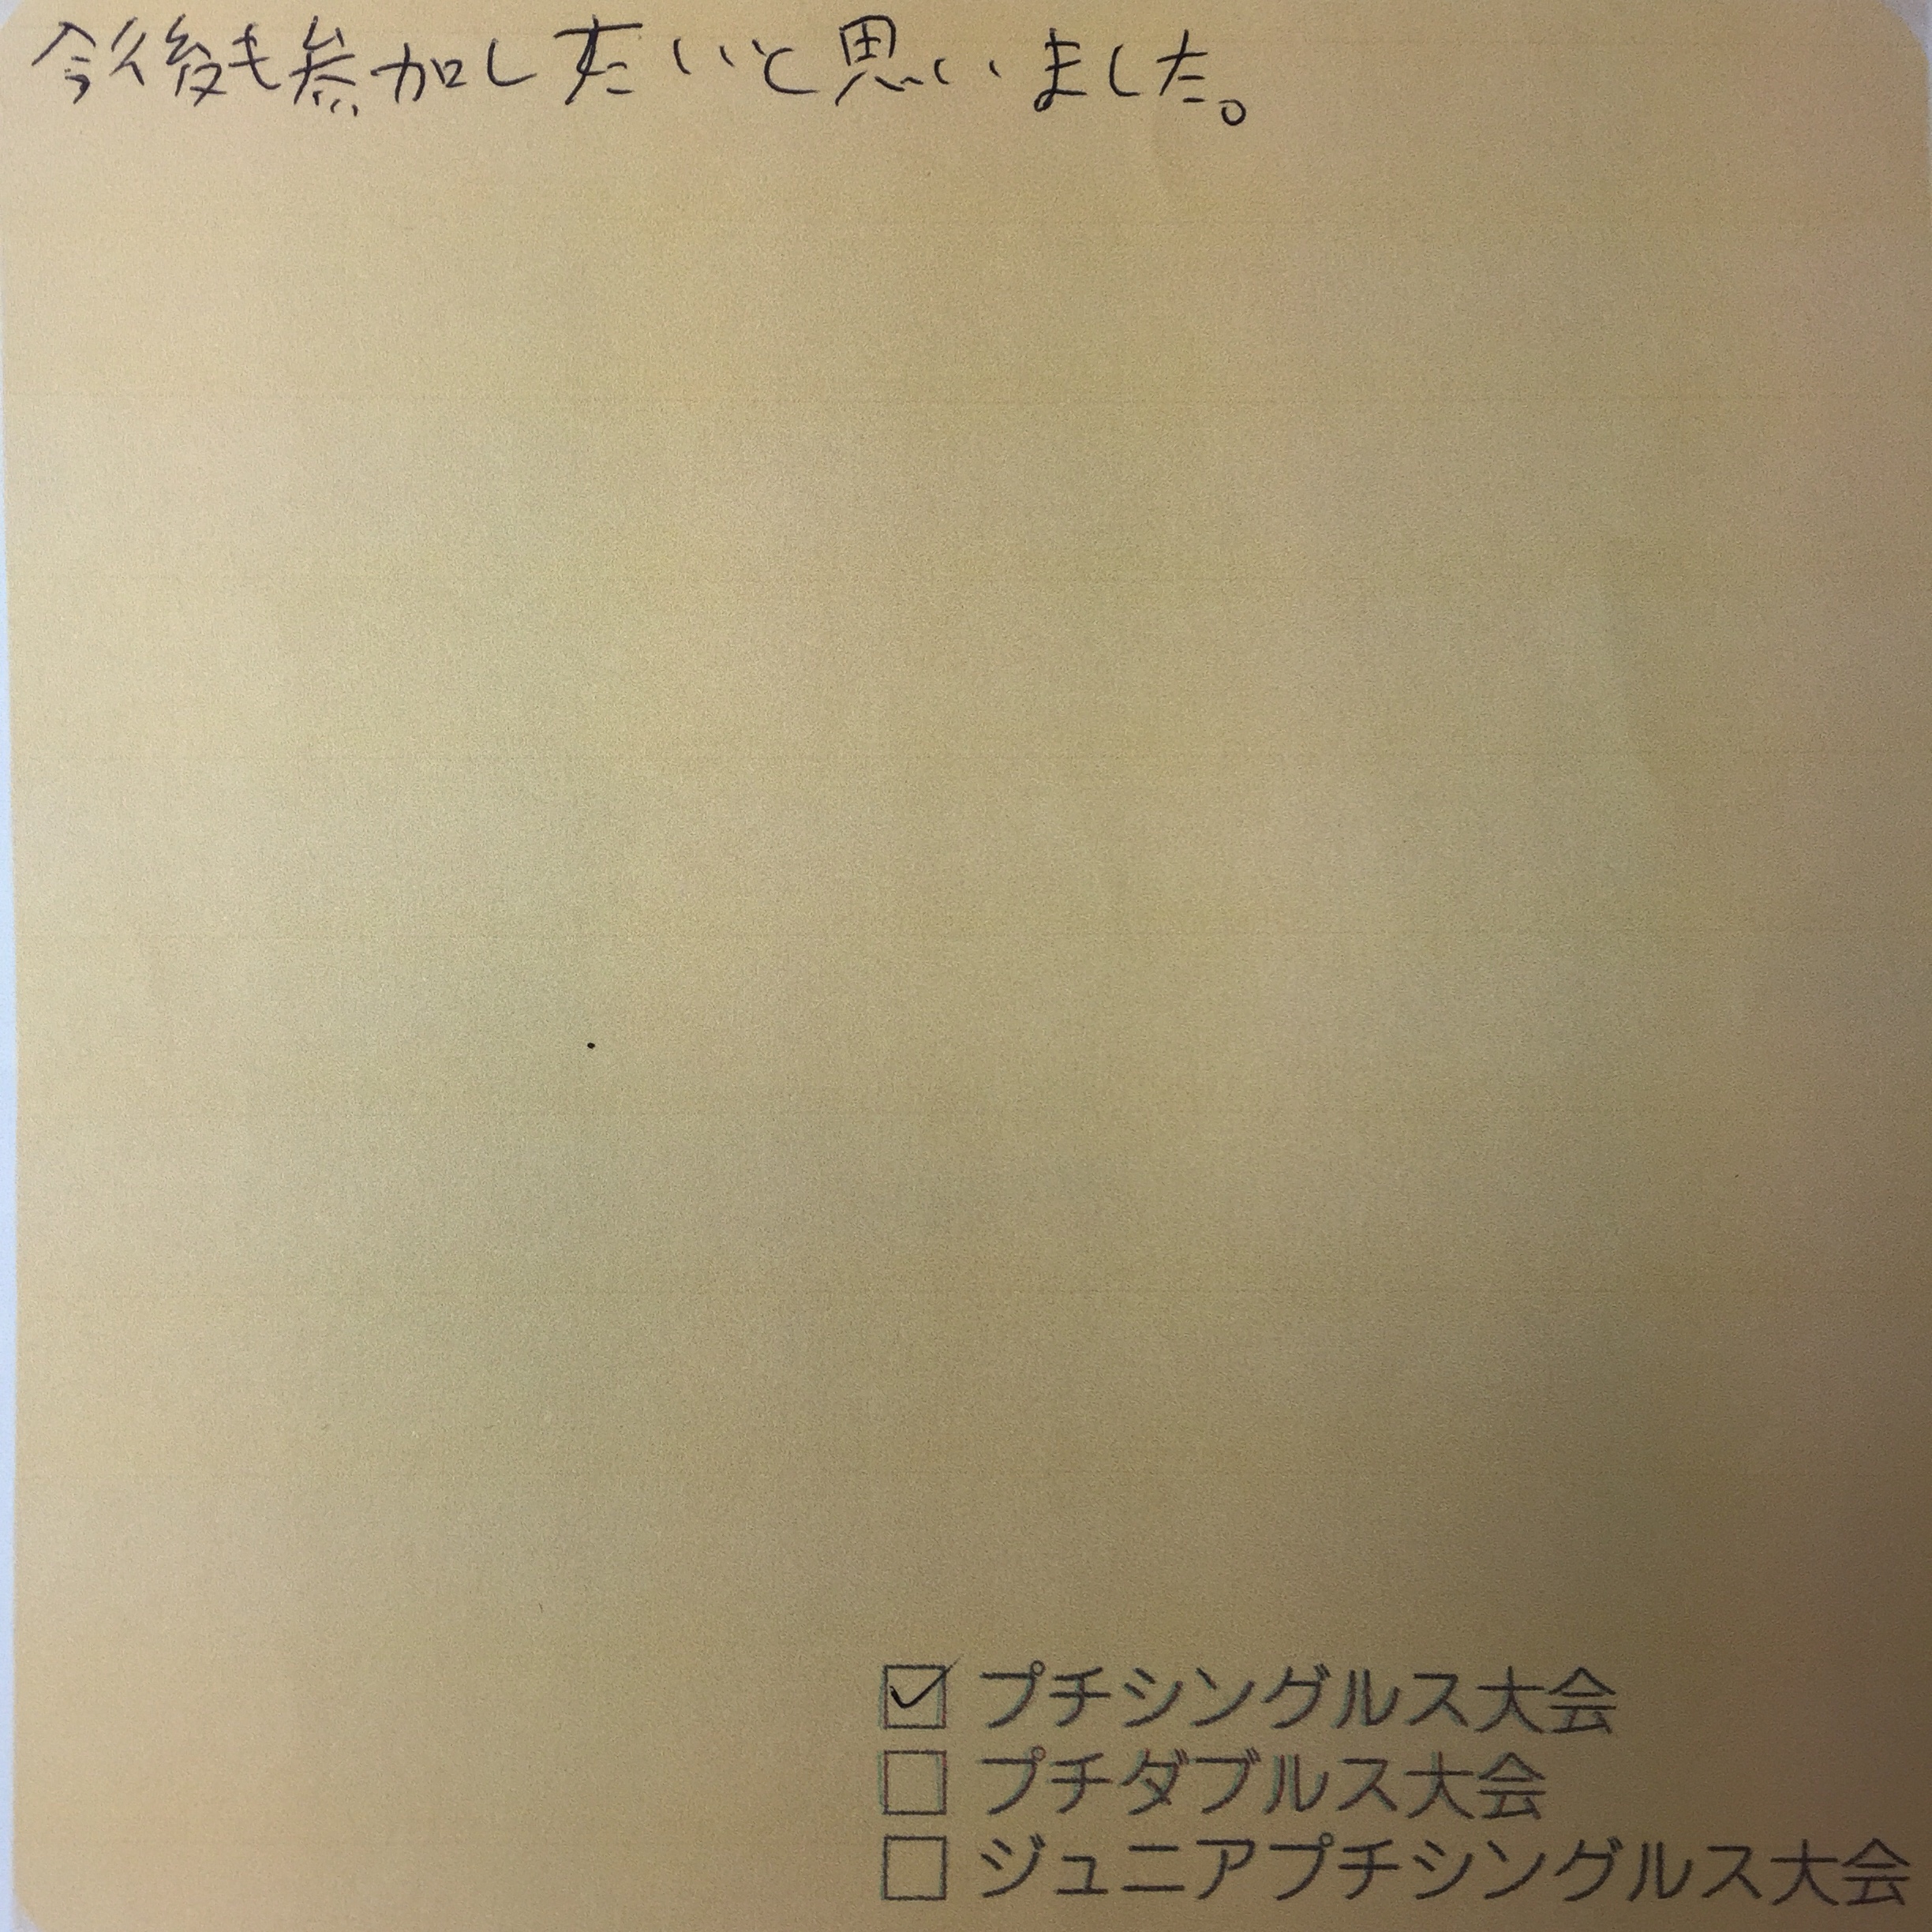 今後も参加したいと思いました。
☑ プチシングルス大会
☐ プチダブルス大会
☐ ジュニアプチシングルス大会